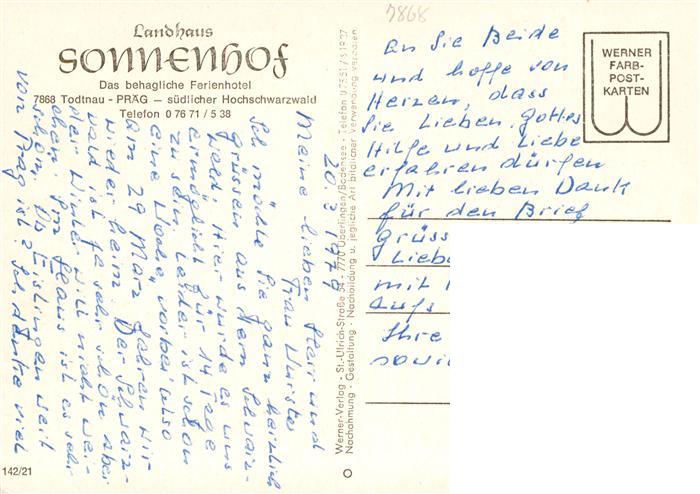 Landhaus
SONNENHOF
Das behagliche Ferienhotel
7868 Todtnau - PRÄG — südlicher Hochschwarzwald
Telefon 0 76 71 / 5 38
20.3.1979
Meine lieben Herr und
Frau Wurster
Ich möchte Sie ganz herzlich
grüssen aus dem Schwarz-
wald. Hier wurde es uns
ermöglicht für 14 Tage
zu sein. Leider ist schon
eine Woche vorbei also
am 29 März fahren wir
wieder heim. Der Schwarz-
wald ist ja sehr schön aber
der Winter will nicht wei-
chen. Im Haus ist es sehr
schön. Da Eislingen weit
von Präg ist Ich denke viel
142/21
Werner-Verlag · St.-Ulrich-Straße 54 · 7770 Überlingen/Bodensee · Telefon 07551/51927
Nachahmung · Gestaltung · Nachbildung u. jegliche Art bildlicher Verwendung verboten
7868
an Sie Beide
und hoffe von
Herzen, dass
Sie Lieben Gottes
Hilfe und Liebe
erfahren dürfen
Mit lieben Dank
für den Brief
grüss
Liebe
mit
Aufs
Ihre
sowi
WERNER
FARB-
POST-
KARTEN